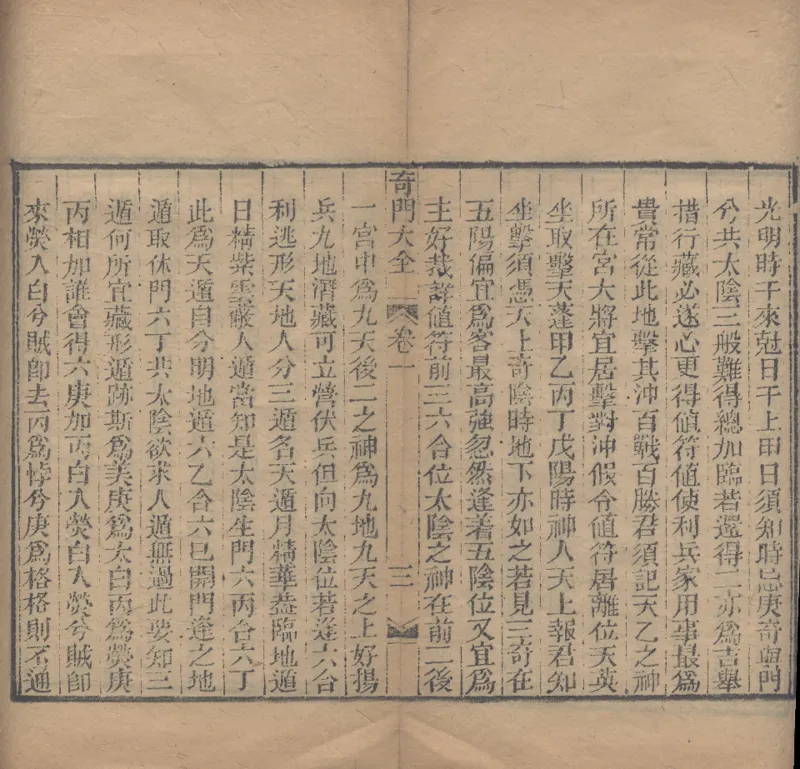 光明時干來尅日干上甲日須知時忌庚奇與門
兮共太陰三般難得總加臨若還得二亦爲吉舉
措行藏必遂心更得値符値使利兵家用事最爲
貴常從此地擊其冲百戰百勝君須記天乙之神
所在宮大將宜居擊對沖假令値符居離位天英
坐取擊天蓬甲乙丙丁戊陽時神人天上報君知
坐擊須憑天上奇陰時地下亦如之若見三奇在
五陽偏宜爲客最高強忽然逢着五陰位又宜爲
主好裁詳値符前三六合位太陰之神在前二後
奇門大全 卷一 三
一宮中爲九天後二之神爲九地九天之上好揚
兵九地潛藏可立營伏兵但向太陰位若逢六合
利逃形天地人分三遁名天遁月精華葢臨地遁
日精紫雲蔽人遁當知是太陰生門六丙合六丁
此爲天遁自分明地遁六乙合六巳開門逢之地
遁取休門六丁共太陰欲求人遁無過此要知三
遁何所宜藏形遁跡斯爲美庚爲太白丙爲熒庚
丙相加誰會得六庚加丙白入熒白入熒兮賊卽
來熒入白兮賊卽去丙爲悖兮庚爲格格則不通